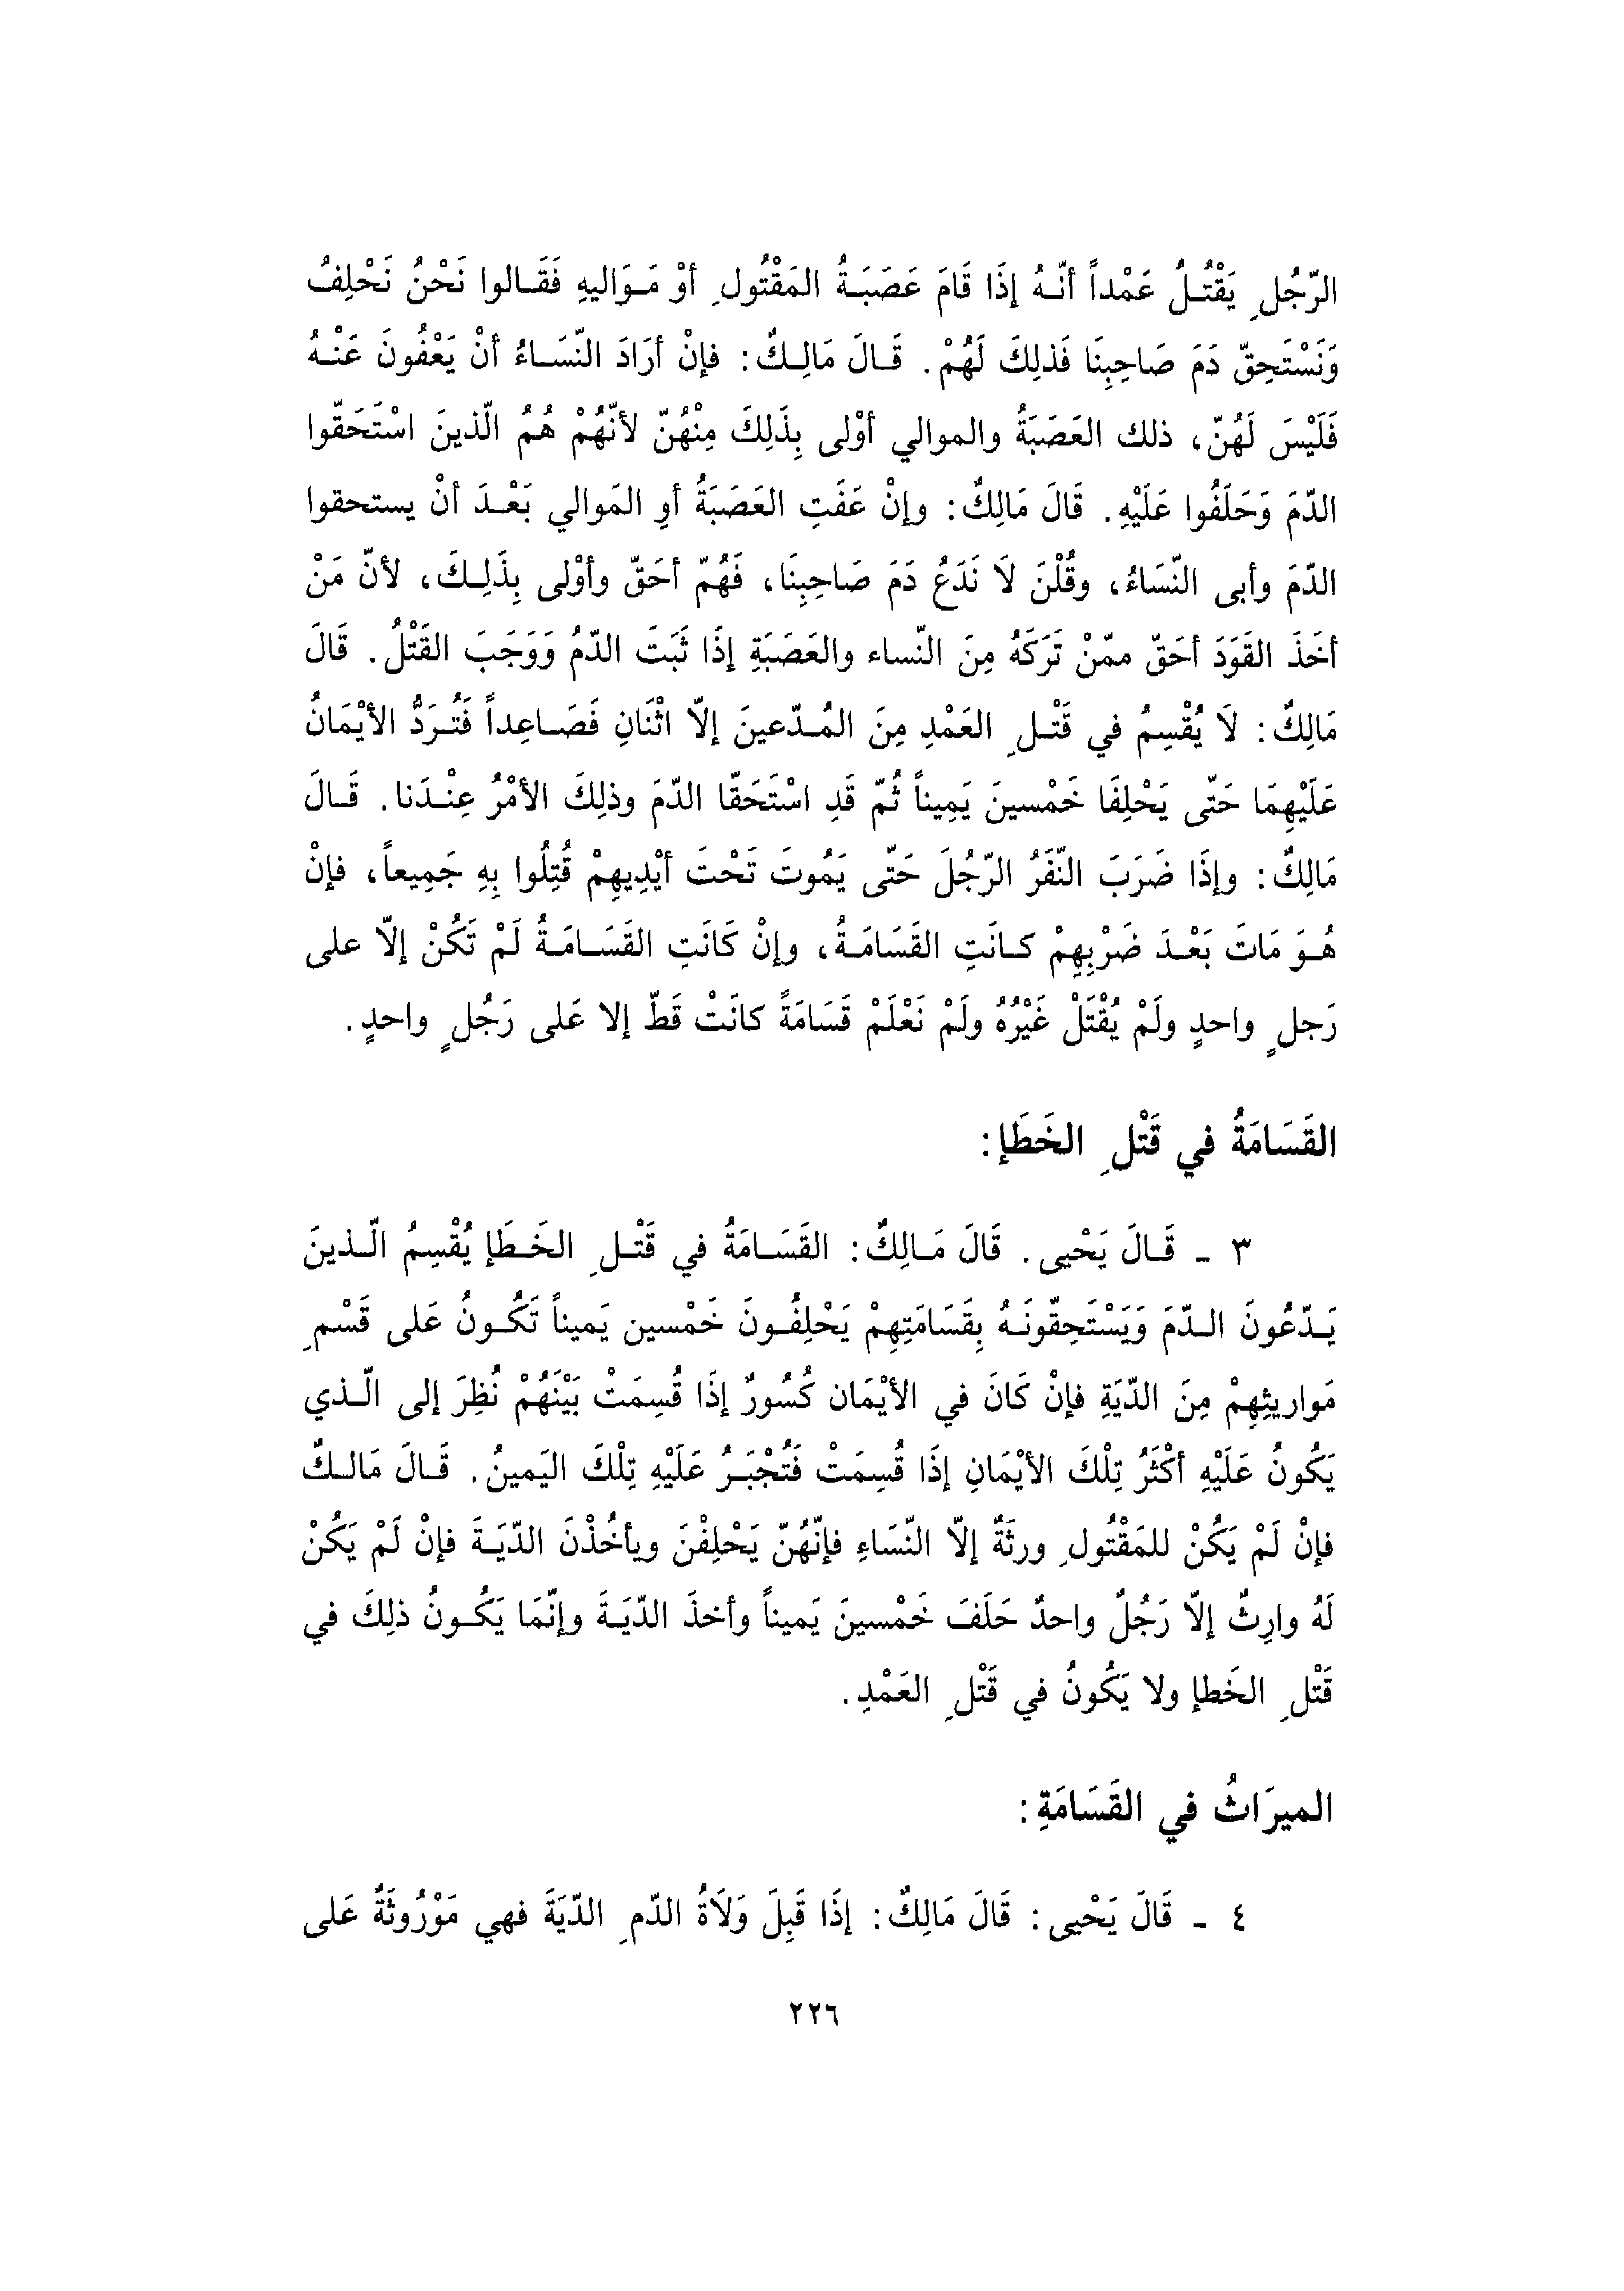 الرّجُلِ يَقْتُـلُ عَمْداً أنّـهُ إذَا قَامَ عَصَبَـةُ المَقْتُولِ أوْ مَـوَاليهِ فَقَـالوا نَحْنُ نَحْلِفُ
وَنَسْتَحِقّ دَمَ صَاحِبِنَا فَذلِكَ لَهُمْ. قَـالَ مَالِـكٌ: فإنْ أرَادَ النّسَـاءُ أنْ يَعْفُونَ عَنْـهُ
فَلَيْسَ لَهُنّ، ذلك العَصَبَةُ والموالي أوْلى بِذَلِكَ مِنْهُنّ لأنّهُمْ هُمُ الّذينَ اسْتَحَقّوا
الدّمَ وَحَلَفُوا عَلَيْهِ. قَالَ مَالِكٌ: وإنْ عَفَتِ العَصَبَةُ أوِ المَوالي بَعْـدَ أنْ يستحقوا
الدّمَ وأبى النّسَاءُ، وقُلْنَ لَا نَدَعُ دَمَ صَاحِبِنَا، فَهُمّ أحَقّ وأوْلى بِذَلِـكَ، لأنّ مَنْ
أخَذَ القَوَدَ أحَقّ ممّنْ تَرَكَهُ مِنَ النّساء والعَصَبَةِ إذَا ثَبَتَ الدّمُ وَوَجَبَ القَتْلُ. قَالَ
مَالِكٌ: لَا يُقْسِمُ في قَتْـلِ العَمْدِ مِنَ المُـدّعينَ إلاّ اثْنَانِ فَصَـاعِداً فَتُـرَدُّ الأيْمَانُ
عَلَيْهِمَا حَتّى يَحْلِفَا خَمْسينَ يَمِيناً ثُمّ قَدِ اسْتَحَقّا الدّمَ وذلِكَ الأمْرُ عِنْـدَنا. قَـالَ
مَالِكٌ: وإذَا ضَرَبَ النّفَرُ الرّجُلَ حَتّى يَمُوتَ تَحْتَ أيْدِيهِمْ قُتِلُوا بِهِ جَمِيعاً، فإنْ
هُـوَ مَاتَ بَعْـدَ ضَرْبِهِمْ كـانَتِ القَسَامَـةُ، وإنْ كَانَتِ القَسَـامَـةُ لَمْ تَكُنْ إلاّ على
رَجلٍ واحدٍ ولَمْ يُقْتَلْ غَيْرُهُ ولَمْ نَعْلَمْ قَسَامَةً كانَتْ قَطّ إلا عَلى رَجُلٍ واحدٍ.
القَسَامَةُ في قَتْلِ الخَطَإ:
٣ ـ قَـالَ يَحْيى. قَالَ مَـالِكٌ: القَسَـامَةُ في قَتْـلِ الخَـطَإ يُقْسِمُ الّـذينَ
يَـدّعُونَ الـدّمَ وَيَسْتَحِقّونَـهُ بِقَسَامَتِهِمْ يَحْلِفُـونَ خَمْسين يَميناً تَكُـونُ عَلى قَسْمِ
مَواريثِهِمْ مِنَ الدّيَةِ فإنْ كَانَ في الأيْمَان كُسُورٌ إذَا قُسِمَتْ بَيْنَهُمْ نُظِرَ إلى الّـذي
يَكُونُ عَلَيْهِ أكْثَرُ تِلْكَ الأيْمَانِ إذَا قُسِمَتْ فَتُجْبَـرُ عَلَيْهِ تِلْكَ اليَمينُ. قَـالَ مَالـكٌ
فإنْ لَمْ يَكُنْ للمَقْتُولِ ورثَةٌ إلاّ النّسَاءِ فإنّهُنّ يَحْلِفْنَ ويأخُذْنَ الدّيَـةَ فإنْ لَمْ يَكُنْ
لَهُ وارِثٌ إلاّ رَجُلٌ واحدٌ حَلَفَ خَمْسينَ يَميناً وأخذَ الدّيَـةَ وإنّمَا يَكُـونُ ذلِكَ في
قَتْلِ الخَطإ ولا يَكُونُ في قَتْلِ العَمْدِ.
الميرَاثُ في القَسَامَةِ:
٤ ـ قَالَ يَحْيى: قَالَ مَالِكٌ: إذَا قَبِلَ وَلَاةُ الدّمِ الدّيَةَ فهي مَوْرُوثَةٌ عَلى
٢٢٦